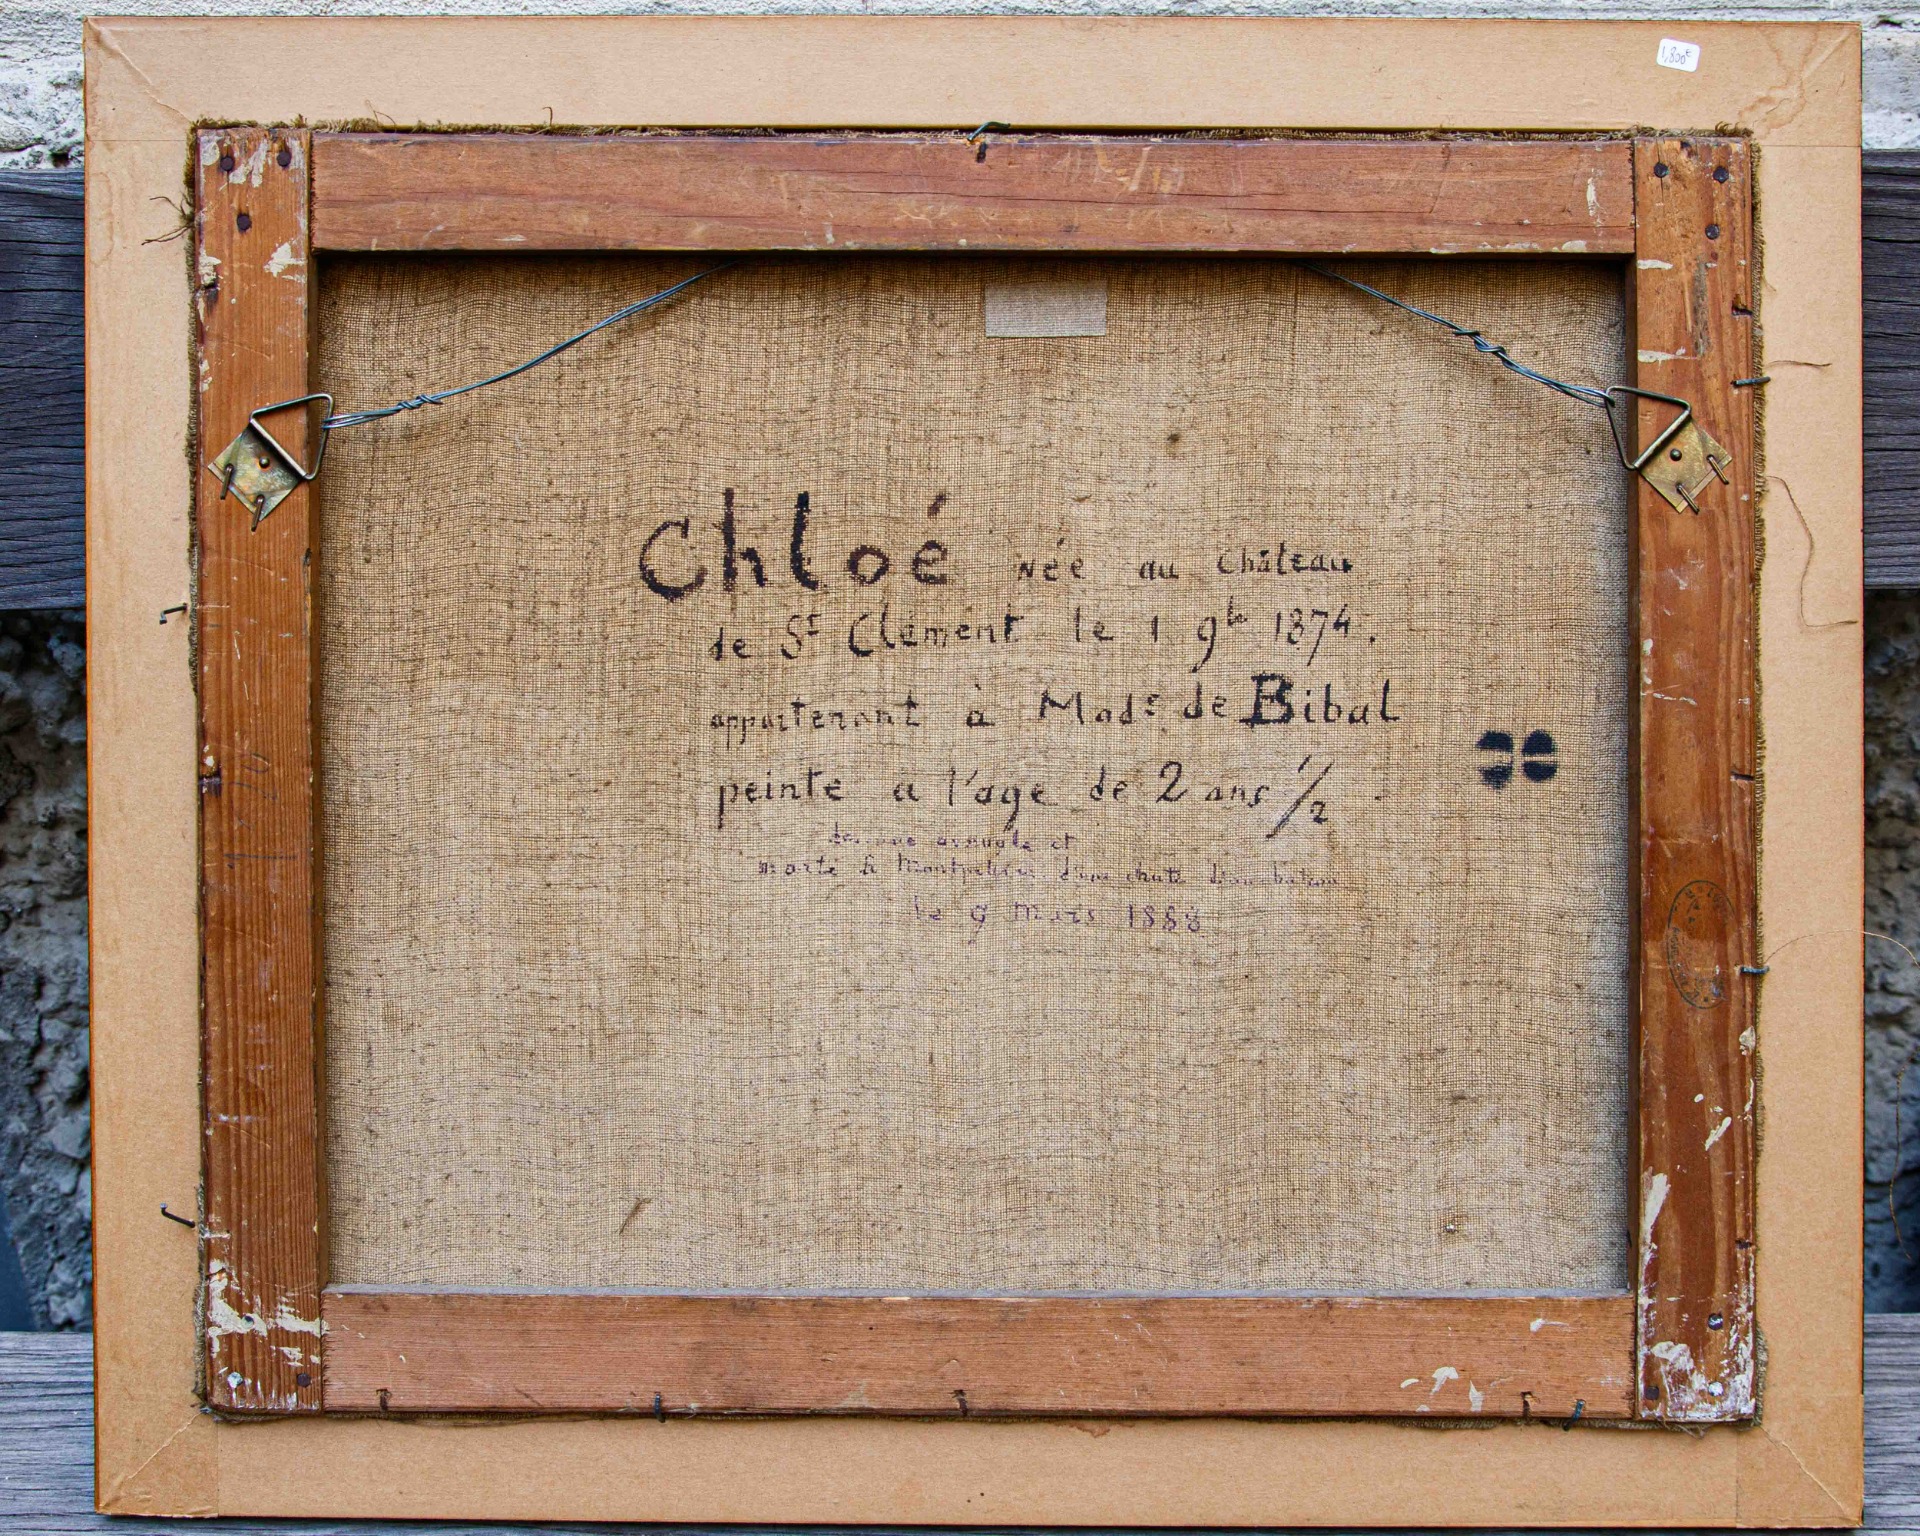 1,800€
Chloé Née au Château
de St Clément le 1 9bre 1874.
appartenant à Made de Bibal
peinte a l'age de 2 ans 1/2
devenue aveugle et
morte à Montpellier d'une chute d'un balcon
le 9 Mars 1888